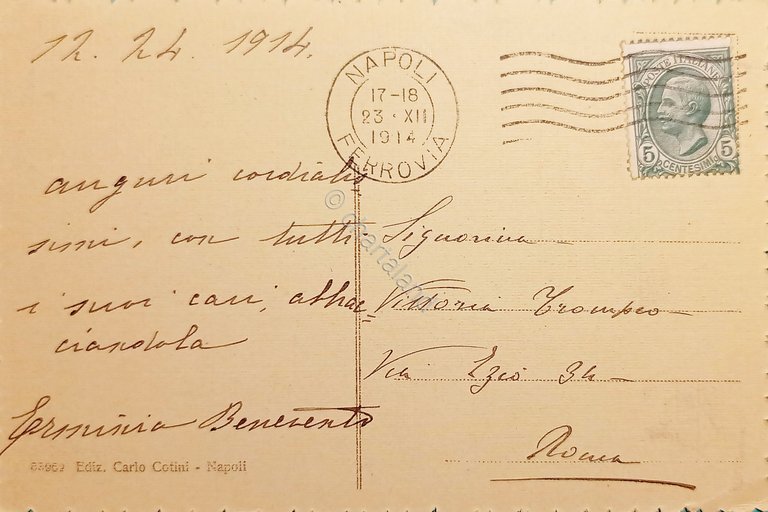 12. 24. 1914.
NAPOLI
17-18
23 · XII
1914
FERROVIA
POSTE ITALIANE
5 CENTESIMI 5
auguri cordialis
simi, con tutti
i suoi cari, abbrac=
ciandola
Erminia Benevento
Signorina
Vittoria Trompeo
Via Ezio 34
Roma
Ediz. Carlo Cotini - Napoli
© chartaland